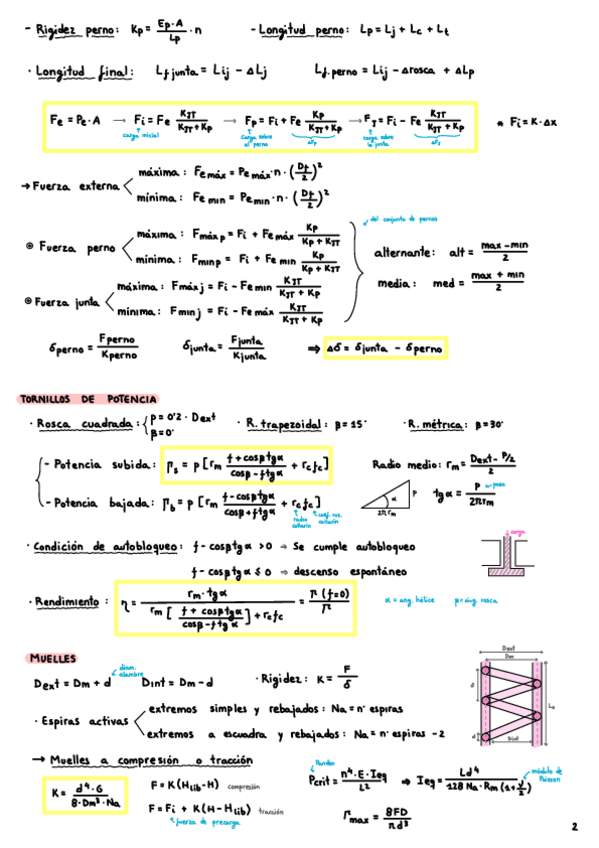 - Rigidez perno: Kp = Ep·A / Lp · n - Longitud perno: Lp = Lj + Lc + Lt
· Longitud final: Lf junta = Lij - ΔLj Lf.perno = Lij - Δrosca + ΔLp
Fe = Pe·A → Fi = Fe KJT / KJT + Kp → Fp = Fi + Fe Kp / KJT + Kp → FJ = Fi - Fe KJT / KJT + Kp * Fi = K·Δx
carga inicial carga sobre el perno ΔFp carga sobre la junta ΔFJ
→ Fuerza externa
máxima: Fe máx = Pe máx · n · (Df / 2)²
mínima: Fe min = Pe min · n · (Df / 2)²
del conjunto de pernos
⊙ Fuerza perno
máxima: Fmáx p = Fi + Fe máx Kp / Kp + KJT
mínima: Fmin p = Fi + Fe min Kp / Kp + KJT
alternante: alt = max - min / 2
media: med = max + min / 2
⊙ Fuerza junta
máxima: Fmáx j = Fi - Fe min KJT / KJT + Kp
mínima: Fmin j = Fi - Fe máx KJT / KJT + Kp
δperno = Fperno / Kperno δjunta = Fjunta / Kjunta ⇒ Δδ = δjunta - δperno
TORNILLOS DE POTENCIA
· Rosca cuadrada: { p = 0'2 · Dext β = 0° · R. trapezoidal: β = 15° · R. métrica: β = 30°
- Potencia subida: Γs = P [rm f + cosβ tgα / cosβ - f tgα + rc fc] Radio medio: rm = Dext - P/2 / 2
- Potencia bajada: Γb = P [rm f - cosβ tgα / cosβ + f tgα + rc fc] α P 2πrm tgα = P / 2πrm paso
radio collarín coef. roz. collarín
· Condición de autobloqueo: f - cosβ tgα > 0 → Se cumple autobloqueo carga
f - cosβ tgα ≤ 0 → descenso espontáneo
· Rendimiento: η = rm · tgα / rm [f + cosβ tgα / cosβ - f tgα] + rc fc = Γ (f=0) / Γ α = ang. hélice β = áng. rosca
MUELLES
Dext = Dm + d diam. alambre Dint = Dm - d · Rigidez: K = F / δ
· Espiras activas
extremos simples y rebajados: Na = nº espiras
extremos a escuadra y rebajados: Na = nº espiras - 2
Dext
Dm
d
Dint
→ Muelles a compresión o tracción
K = d⁴ · G / 8 · Dm³ · Na
F = K (Hlib - H) compresión
F = Fi + K (H - Hlib) tracción
fuerza de precarga
Pandeo
Pcrit = π² · E · Ieq / L² ⇒ Ieq = Ld⁴ / 128 Na · Rm (1 + ν/2) módulo de Poisson
Γmax = 8FD / πd³
2